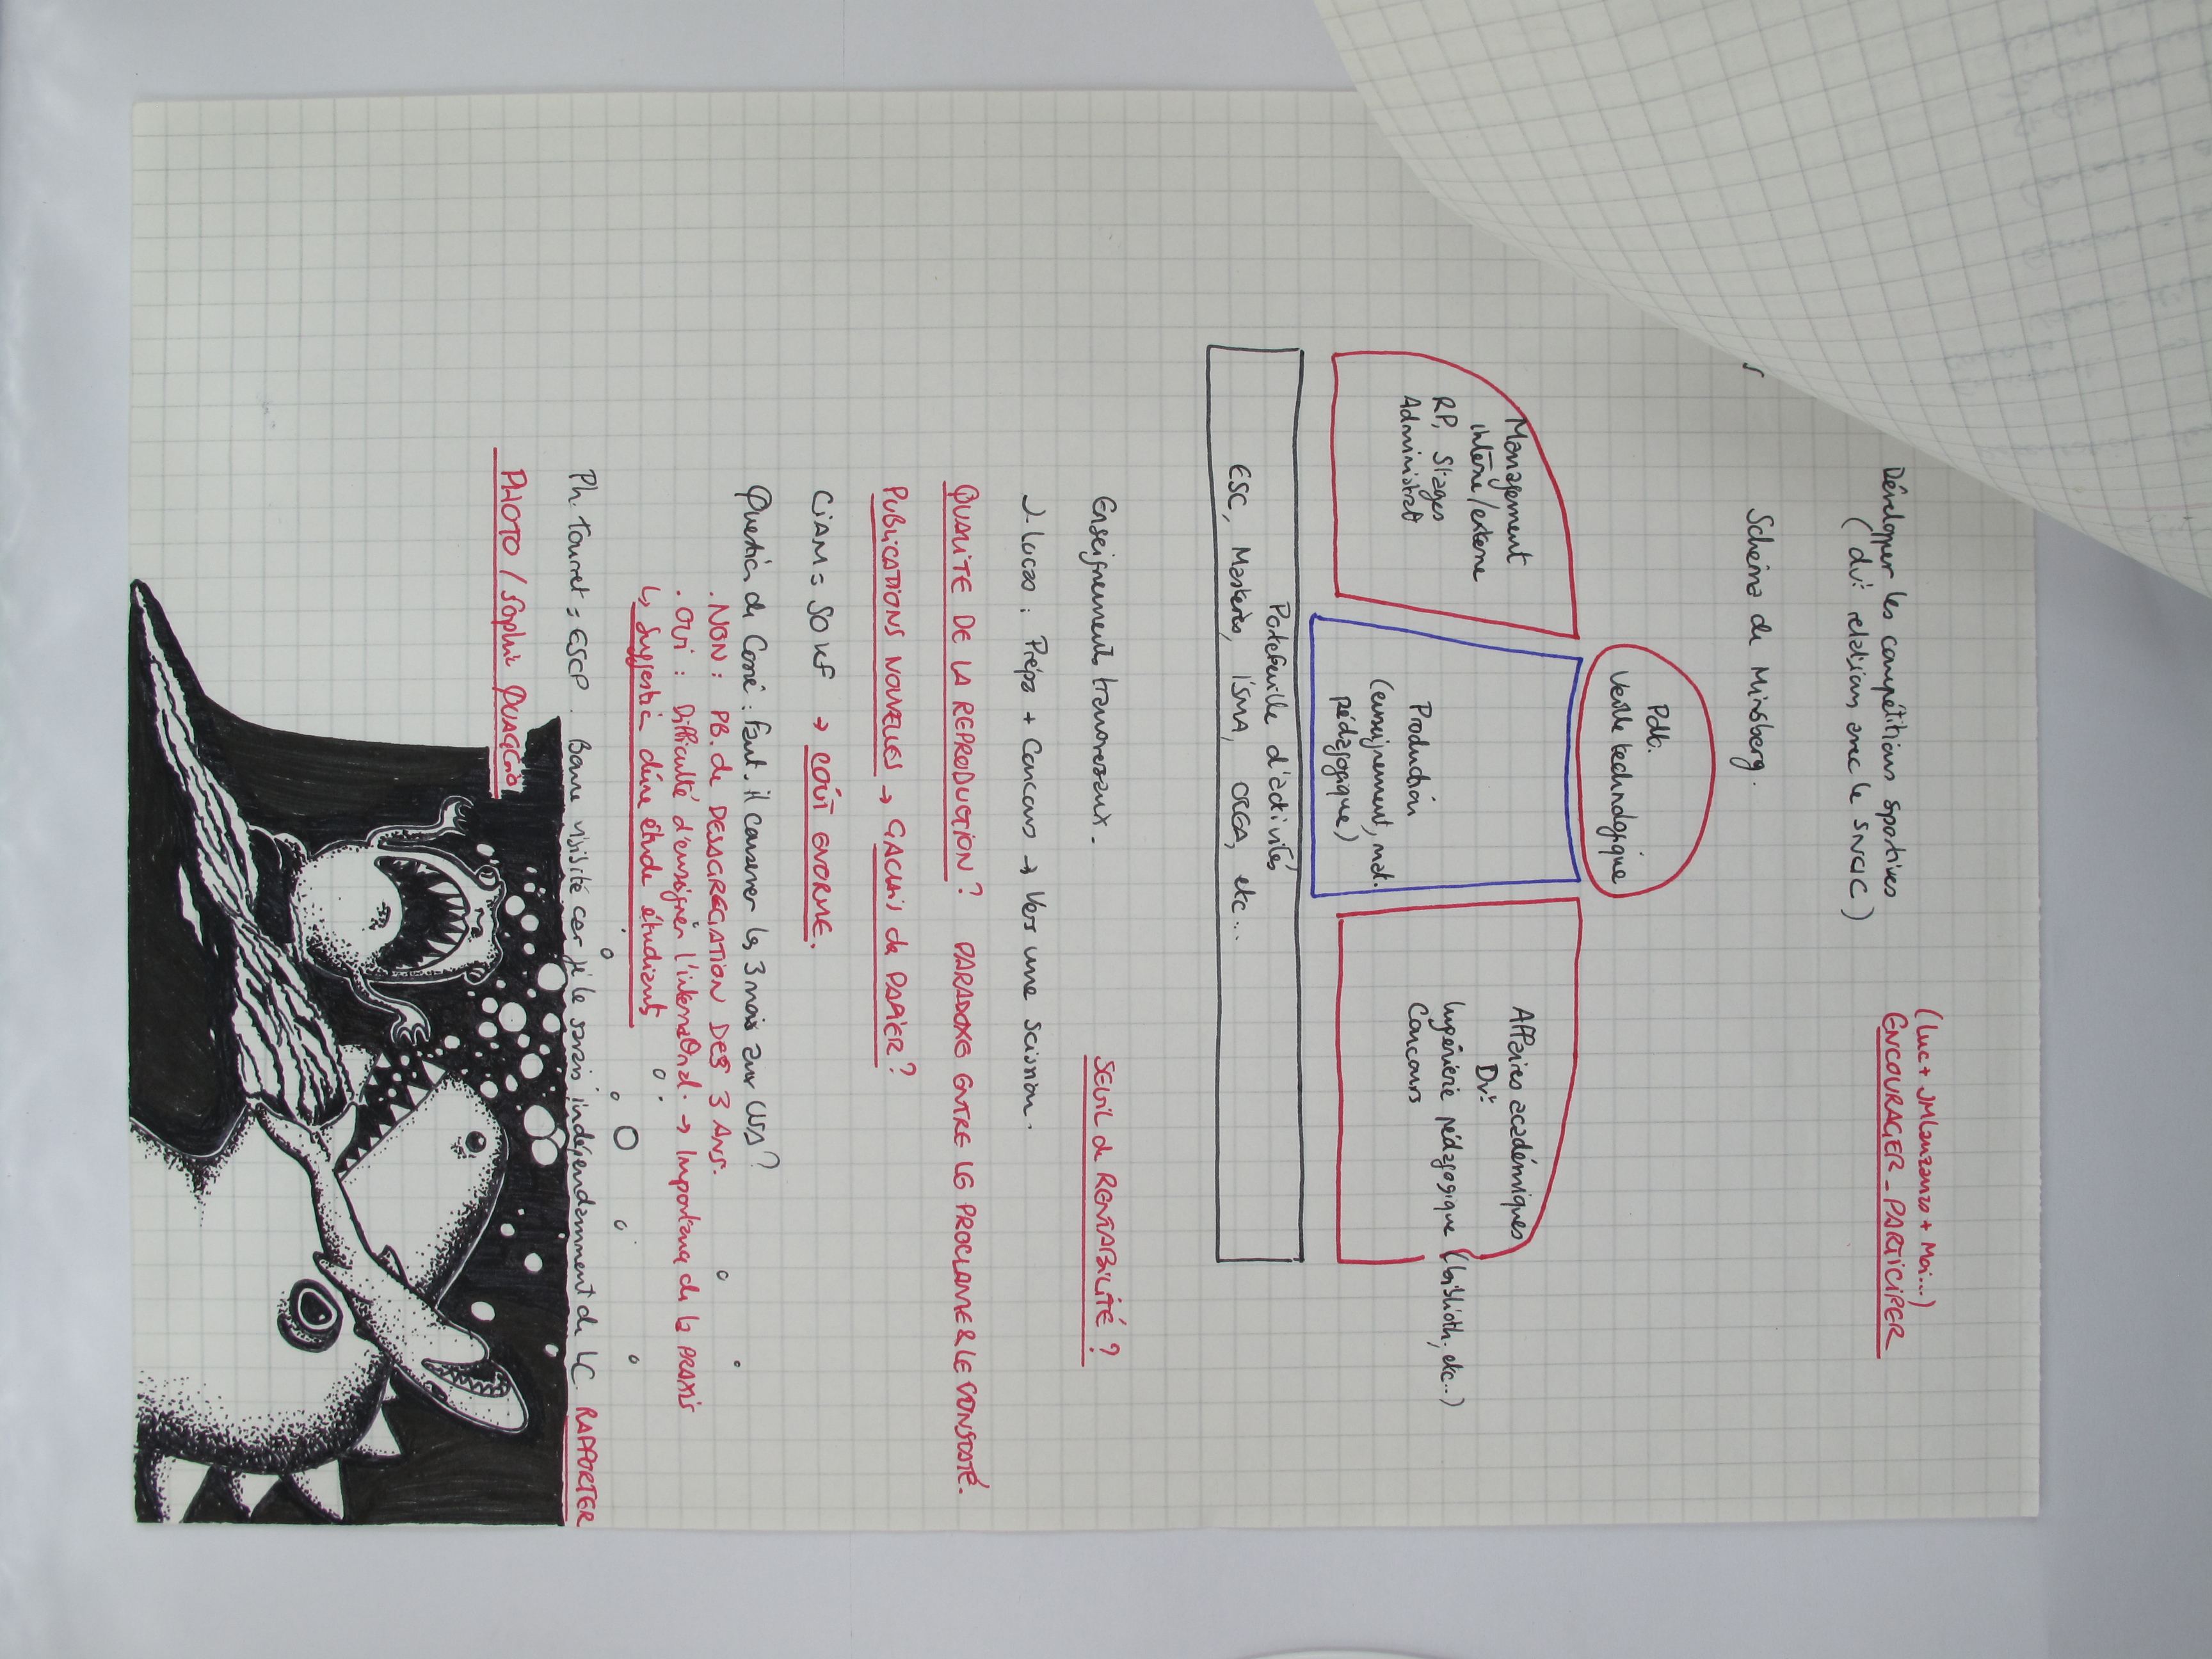 (Luc + JMLanzanzo + Moi...)
Développer les compétitions sportives ENCOURAGER - PARTICIPER
(dvt relations avec le SNUC)
Schéma de Minsberg.
Pdt.
Veille technologique
Management
interne/externe
RP, Stages
Administrat
Production
(enseignement, mat.
pédagogique)
Affaires académiques
Dvt
Ingénierie pédagogique (biblioth, etc..)
Concours
Portefeuille d'activités
ESC, Mastères, ISMA, CICGA, etc...
Enseignements transversaux. SEUIL de RENTABILITÉ ?
J. Lucas : Prépa + Concours → Vers une scission.
QUALITE DE LA REPRODUCTION ? PARADOXE ENTRE LE PROCLAME & LE CONSTATÉ.
PUBLICATIONS NOUVELLES → GACHIS de PAPIER ?
CIAM = 50 KF → COÛT ENORME.
Question de Corré : faut-il conserver les 3 mois aux USA ?
. NON : PB. de DESAGREGATION DES 3 ANS.
. OUI : Difficulté d'enseigner l'internatnal. → Importance de la PRAXIS
↳ suggestion d'une étude étudiant
Ph. Tourret = ESCP. Bonne visibilité car je le savais indépendamment de LC. RAPPORTER
PHOTO / Sophie QUAGGIO